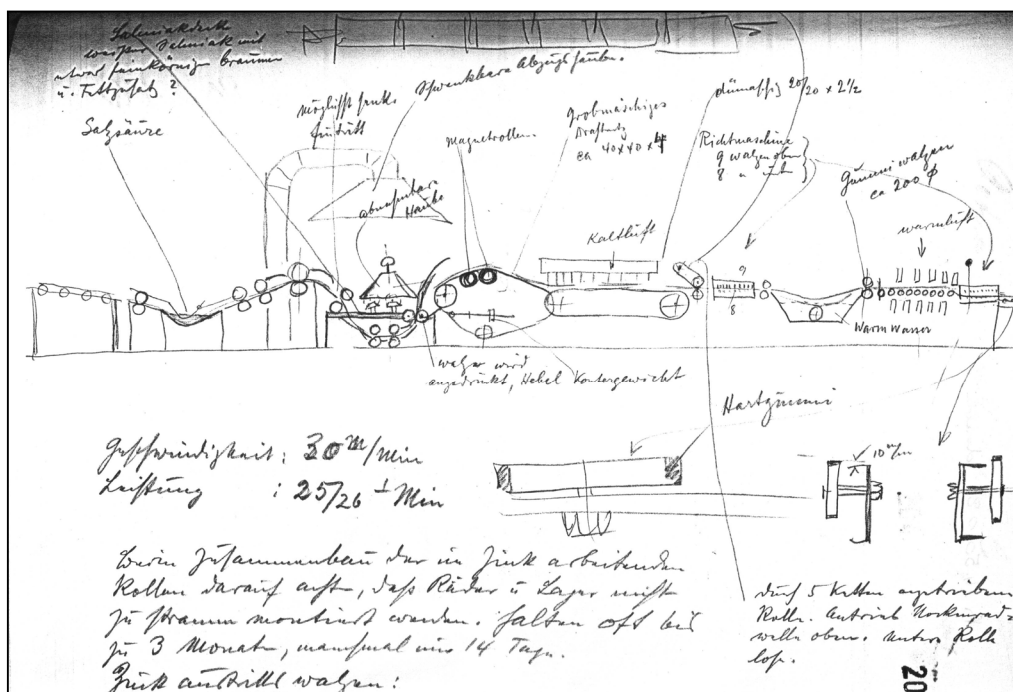 Salmiakdecke
weißer Salmiak mit
etwas feinkörnigen braunen
u. Fettzusatz ?
Salzsäure
möglichst senk.
Eintritt
Schwenkbare Abzugshaube.
abnehmbare
Haube
Magnetrollen
Grobmaschiges
Drahtnetz
ca 40 x 40 x 4
20/20 x 2 1/2
Richtmaschine
9 walzen oben
8 " unt
Gummiwalzen
ca 200 φ
warmluft
Kaltluft
9
8
Warm Wasser
walze wird
angedrückt, Hebel Kontergewicht
Hartgummi
Geschwindigkeit: 30 m/Min
Leistung : 25/26 t Min
10 m/m
beim Zusammenbau der im Zink arbeitenden
Rollen darauf acht, daß Räder u Lager nicht
zu stramm montiert werden. halten oft bis
zu 3 Monate, manchmal nur 14 Tage.
Zink austritt walzen:
durch 5 Ketten angetrieben
Rolle. Antrieb
welle oben. untere Rolle
lose.
20